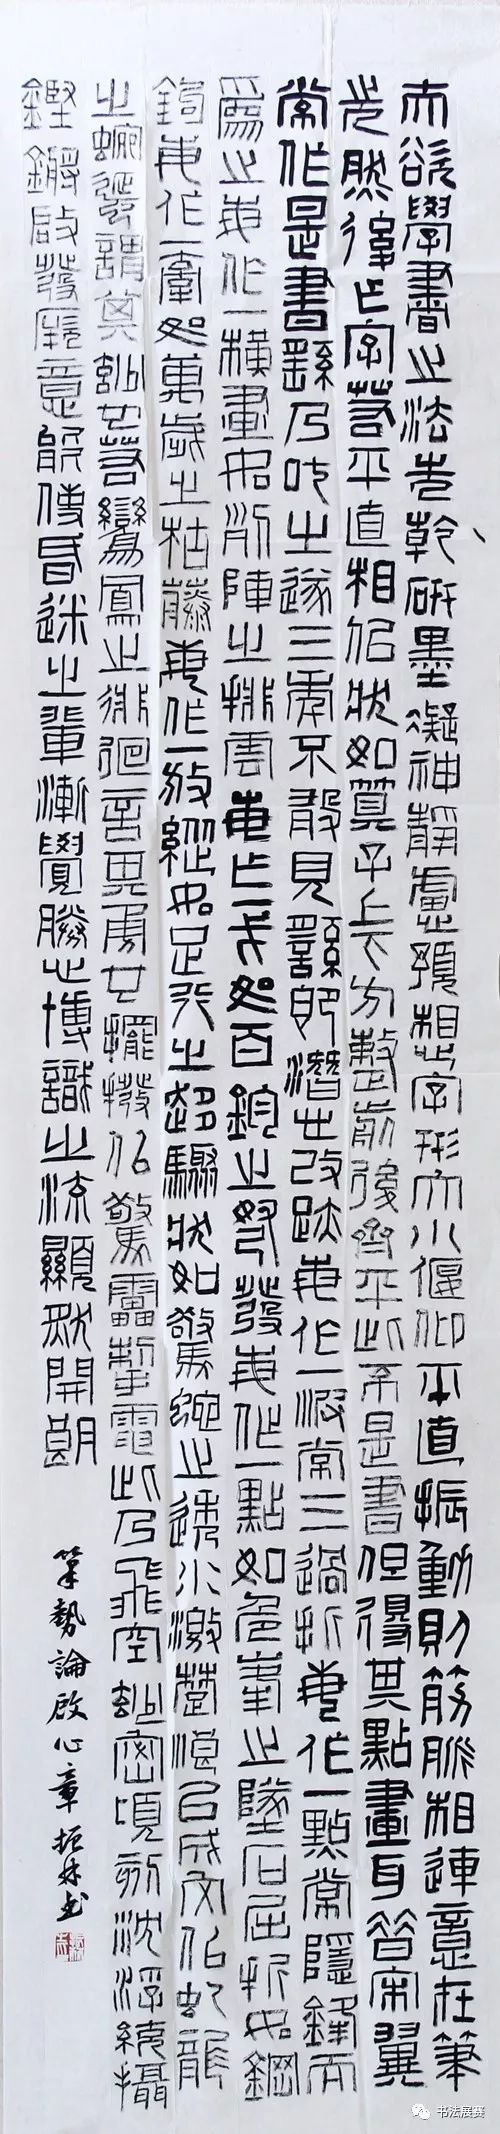 夫欲學書之法先乾研墨凝神靜慮預想字形大小偃仰平直振動則筋脈相連意在筆
先然後作字若平直相似狀如算子上下方整前後齊平此不是書但得其點畫耳昔宋翼
常作是書繇乃叱之遂三年不敢見繇即潛心改跡每作一波常三過折每作一點常隱鋒而
爲之每作一橫畫如列陣之排雲每作一戈如百鈞之弩發每作一點如危峯之墜石屈折如鋼
鉤每作一牽如萬歲之枯藤每作一放縱如足行之趨驟狀如驚蛇之透水激楚浪以成文似虬龍
之蜿蜒謂其妙也若鸞鳳之徘徊言其勇也擺撥似驚雷掣電此乃飛空妙密頃刻沈浮統攝
鏗鏘啟發厥意能傳昏迷之輩漸覺勝心博識之流顯然開朗
筆勢論啟心章 振林書
书法展赛